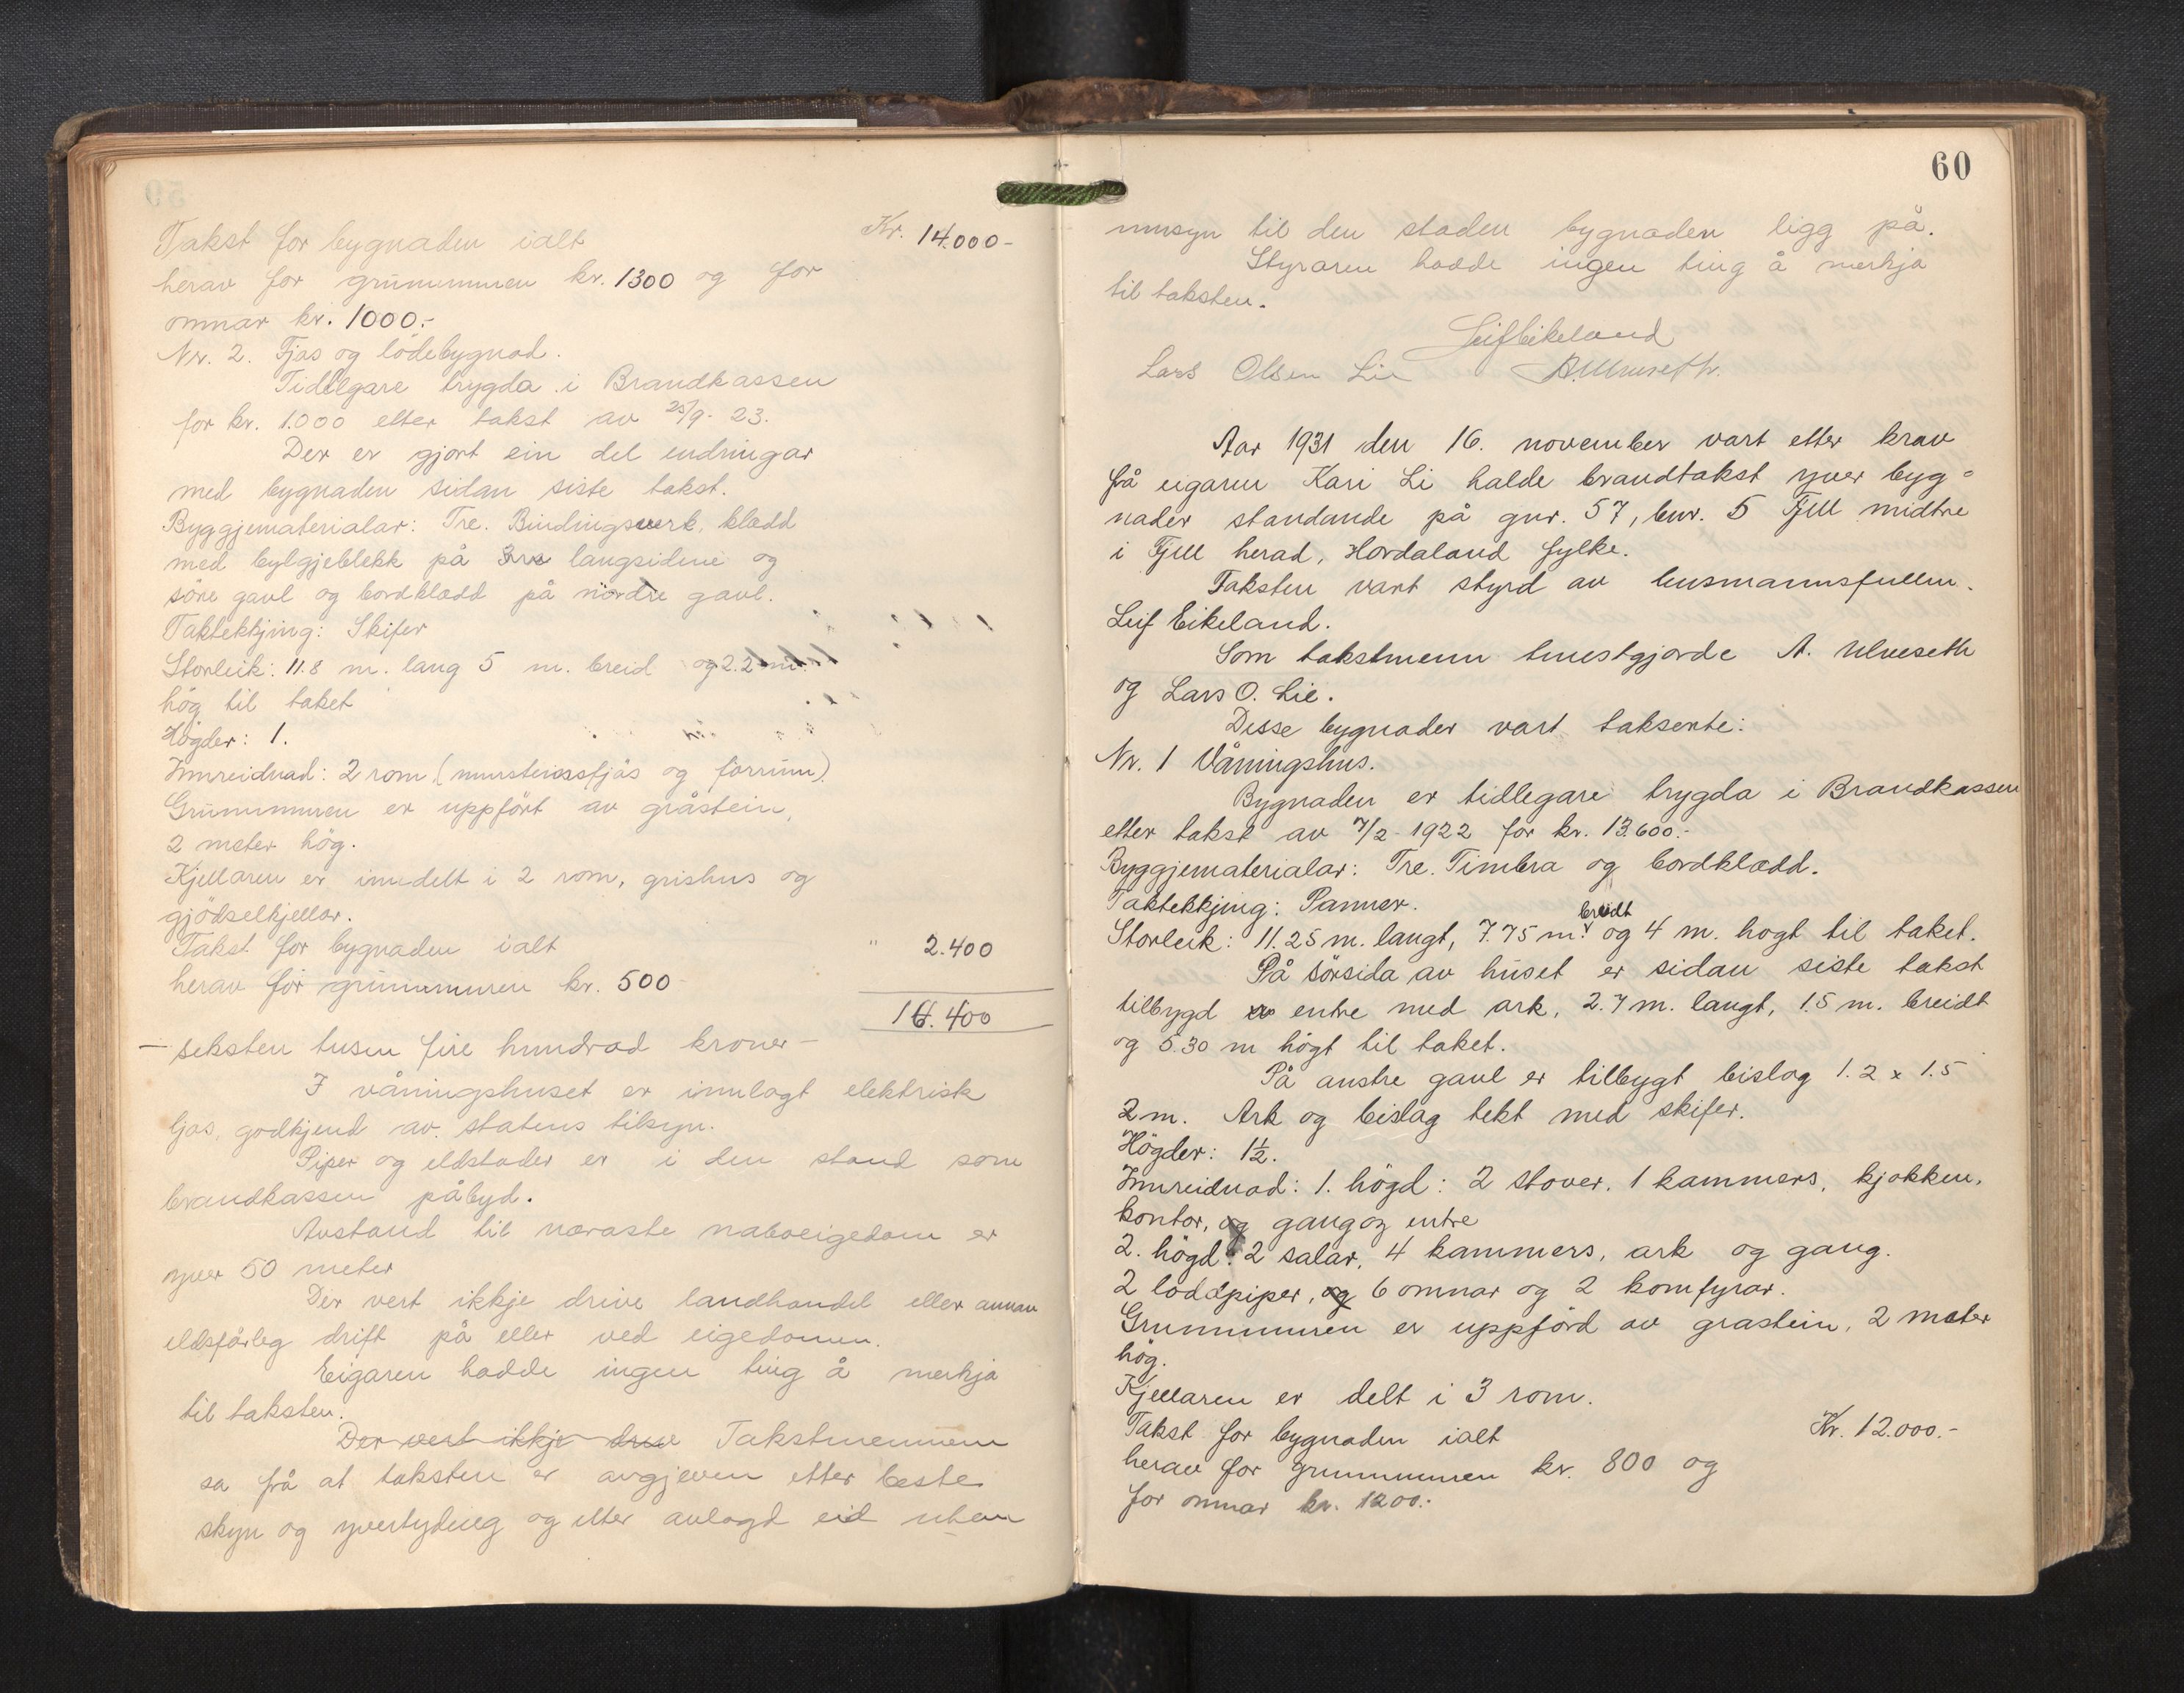 Takst for bygnaden ialt Kr. 14.000-
herav for grunnmuren kr. 1300 og for
omnar kr. 1000.-
Nr. 2. Fjøs og lödebygnad.
Tidlegare trygda i Brandkassen
for kr. 1.000 etter takst av 25/9. 23.
Der er gjort ein del endringar
med bygnaden sidan siste takst.
Byggjematerialar: Tre. Bindingsverk, klædd
med bylgjeblekk på langsidene og
söre gavl og bordklædd på nördre gavl.
Taktekkjing: Skifer
Storleik: 11.8 m. lang 5 m. breid og 2.2 m.
hög til taket
Högder: 1.
Innreidnad: 2 rom (mursteinsfjös og förrum).
Grunnmuren er uppfört av gråstein,
2 meter hög.
Kjellaren er inndelt i 2 rom, grishus og
gjödselkjellar.
Takst for bygnaden ialt " 2.400
herav for grunnmuren kr. 500
16.400
- seksten tusen fire hundrad kroner -
I våningshuset er innlagt elektrisk
ljos, godkjend av statens tilsyn.
Piper og eldstader er i den stand som
brandkassen påbyd.
Avstand til næraste naboeigedom er
yver 50 meter
Der vert ikkje drive landhandel eller annan
eldsfårleg drift på eller ved eigedomen.
Eigaren hadde ingen ting å merkja
til taksten.
Der vert ikkje drive Takstmennene
sa frå at taksten er avgjeven etter beste
skyn og yvertyding og etter avlagd eid utan
60
umsyn til den staden bygnaden ligg på.
Styraren hadde ingen ting å merkja
til taksten.
Leif Eikeland
Lars Olsen Lie A. Ulveseth.
Aar 1931 den 16. november vart etter krav
frå eigaren Kari Li halde brandtakst yver byg=
nader standande på gnr. 57, bnr. 5 Fjell midtre
i Fjell herad, Hordaland fylke.
Taksten vart styrd av lensmannsfullm.
Leif Eikeland.
Som takstmenn tenestgjorde A. Ulveseth
og Lars O. Lie.
Disse bygnader vart takserte:
Nr. 1 Våningshus.
Bygnaden er tidlegare trygda i Brandkassen
etter takst av 7/2 1922 for kr. 13.600.-
Byggjematerialar: Tre. Timbra og bordklædd.
Taktekkjing: Panner.
Storleik: 11.25 m. langt, 7.75 m. breidt og 4 m. hogt til taket.
På sörsida av huset er sidan siste takst
tilbygd entre med ark, 2.7 m. langt, 1.5 m. breidt
og 5.30 m högt til taket.
På austre gavl er tilbygt bislag 1.2 x 1.5
2 m. Ark og bislag tekt med skifer.
Högder: 1½.
Innreidnad: 1. högd: 2 stover, 1 kammers, kjokken,
kontor, og gang og entre
2. högd: 2 salar, 4 kammers, ark og gang.
2 loddpiper, og 6 omnar og 2 komfyrar.
Grunnmuren er uppförd av grastein, 2 meter
hög.
Kjellaren er delt i 3 rom.
Takst for bygnaden ialt Kr. 12.000.-
herav for grunnmuren kr. 800 og
for omnar kr. 1200.-